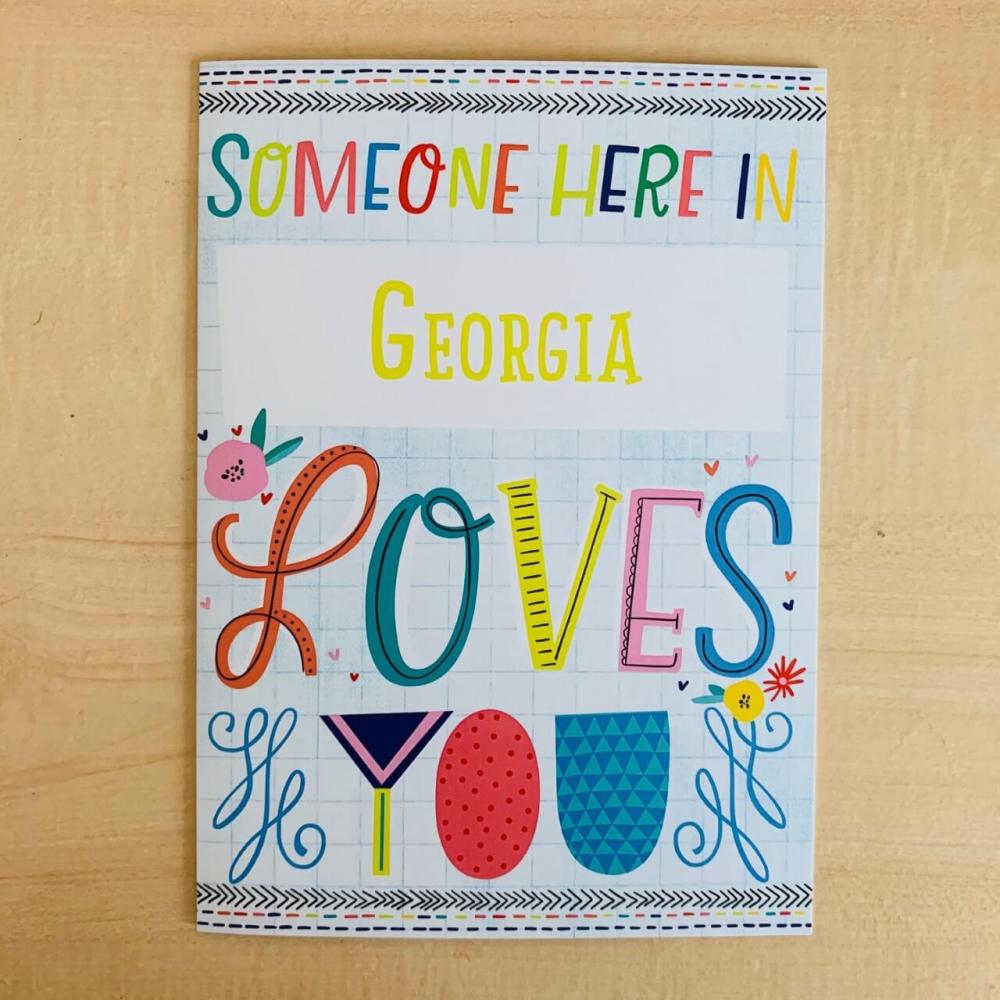 SOMEONE HERE IN
GEORGIA
LOVES
YOU